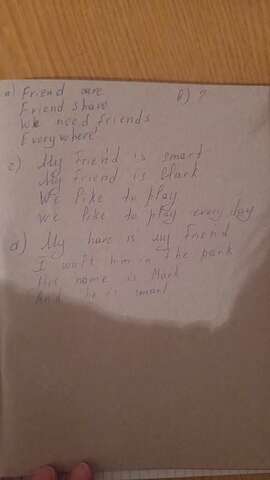 a) Friend are b) ?
Friend share
We need friends
Everywhere
c) My Friend is smart
My Friend is Clark
We like to play
We like to play every day
d) My hare is my Friend
I walk him in the park
His name is Mark
And he is smart